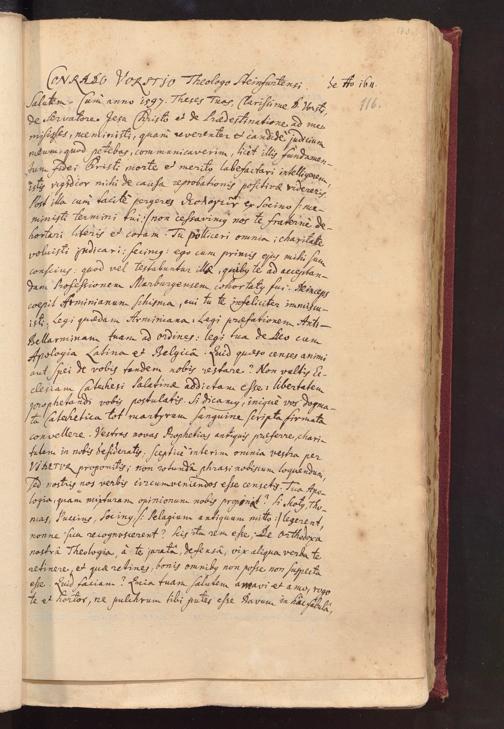 CONRADO VORSTIO Theologo Steinfurtensi. de Ao 1611.
116.
Salutem. Cum anno 1597. Theses Tuas, Clarissime D. Vorsti,
de Servatore Jesu Christo et de Prædestinatione ad me
misisses, meministi, quam reverenter et candide judicium
meum, quod petebas, communicaverim, licet illis fundamen-
tum fidei Christi morte et merito labefactari intelligerem,
istis rigidior mihi de causa reprobationis positivæ videreris.
Post illa cum tacite pergeres ex Socino /: me-
ministe termini tui :/ non cessavimus nos te fraterne de-
hortari literis et coram. Tu polliceri omnia: charitate
voluisti judicari: fecimus: ego cum primis ejus mihi sum
conscius: quod vel testabuntur illæ, quibus te ad acceptan-
dam Professionem Marburgensem cohortatus fui. Deinceps
coepit Arminianum schisma, cui tu te infeliciter immiscu-
isti. Legi quædam Arminiana. Legi præfationem Anti-
Bellarminam tuam ad ordines: legi tua de Deo cum
Apologia Latina et Belgica. Quid quæso censes animi
aut spei de vobis tandem nobis restare? Non vultis Ec-
clesiam Catechesi Palatinæ addictam esse: libertatem
prophetandi vobis postulatis. Si dicam, inique vos dogma-
ta Catechetica tot martyrum sanguine scripta firmata
convellere. Vestras novas Prophetias antiquis præferre, chari-
tatem in nobis desideratis, sceptice interim omnia vestra per
proponitis, non rotunda phrasi nobiscum loquendum,
sed nostris nos verbis circumveniendos esse censetis. Tua Apo-
logia quam mixturam opinionum nobis propinat? Si Scoty, Tho-
mas, Puccius, Socinus /: Pelagium antiquum mitto :/ legerent,
nonne sua recognoscerent? Scis ita rem esse. De Orthodoxa
nostra Theologia, à te jurata, defensa, vix aliqua verba te
retinere, et quæ retines, bonis omnibus non posse non suspecta
esse. Quid faciam? Quia tuam salutem amavi et amo, rogo
te et hortor, ne pulchrum tibi putes esse Davum in hac fabula,